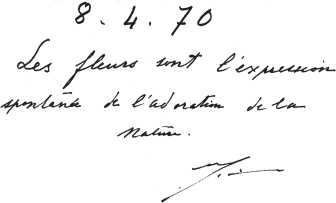 8.4.70
Les fleurs sont l'expression
spontanée de l'adoration de la
Nature.